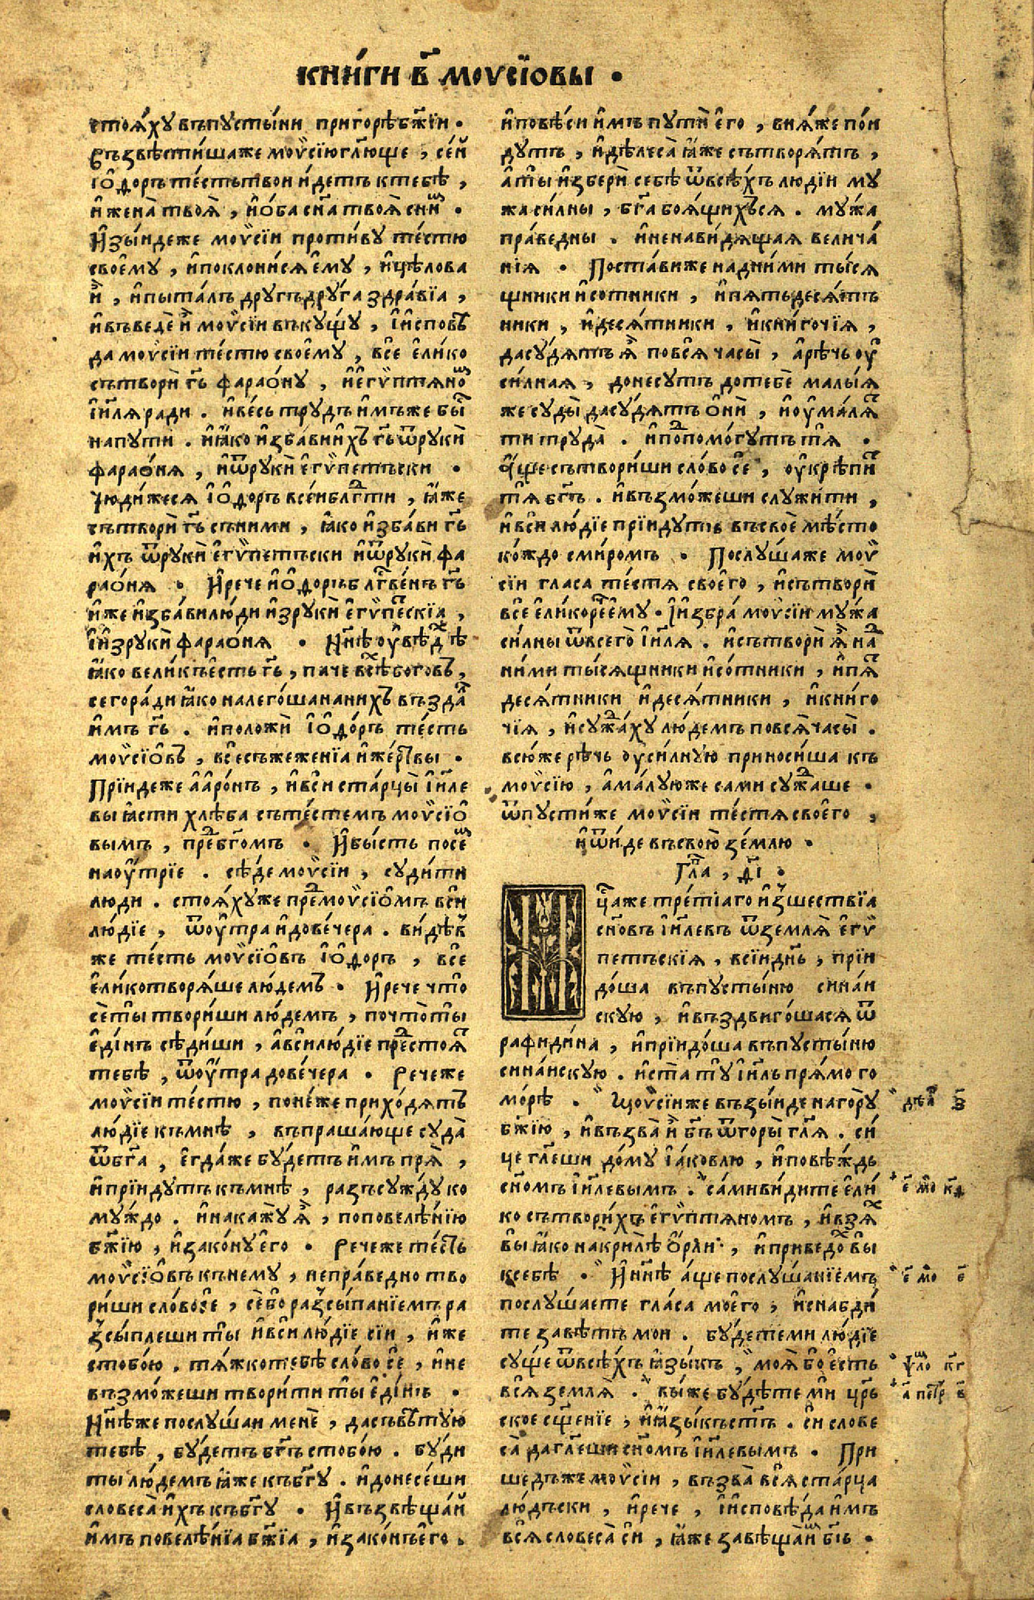 книги в҃ моѵсїовы •
стоя́ху въпусты́ни пригорѣ бж҃їи •
Възвѣсти́шаже моѵ̈сїю гл҃юще , се́й
іѻ̑доръ те́стьтвои и҆де́тъ ктебѣ̀ ,
и҆жена̀ твоѧ̀ , и҆о́ба сн҃а твоѧ̀ сни́м •
И҆зы́иде же моѵ̈сїи проти́ву те́стю
своемꙋ , и҆поклони́ся е҆му , и҆цѣлова
и҆̀ , и҆пыта́лъ дру́гъ дру́га здра́вїа ,
и҆въведѐ и҆̀ моѵ̈сїи вкꙋщꙋ , і҆исповѣ
да моѵ̈сїи те́стю своемꙋ , всѐ е҆ли́ко
сътворѝ гь҃ фарао́ну , и҆е҆гѵ́птяно
і҆и҃ля ради . и҆ве́сь тру́дъ и҆́мъже бы
напути . и҆я҆́ко и҆зба́ви и҆́хъ гь҃ ѿрукѝ
фарао́ня , и҆ѿрукѝ е҆гѵ́петьски •
чюди́жеся іѻ̑доръ всеи бл҃гти , я҆́же
сътворѝ гь҃ сни́ми , я҆́ко и҆зба́ви гь҃
и҆́хъ ѿрукѝ е҆гѵ́петьски и҆ѿрукѝ фа
рао́ня • И҆рече и҆ѻ̑доръ бл҃гве́нъ гь҃
и҆́же и҆зба́ви лю́ди и҆зрукѝ е҆гѵ́пескїа ,
і҆изрукѝ фарао́ня • Нн҃ѣ ѹ҆вѣдѣ
я҆́ко вели́къ е҆́сть гь҃ , па́че всѣ бого́въ ,
сегора́ди я҆́ко налего́ша нани́хъ възда
и҆́мъ гь҃ . и҆положѝ іѻ̑доръ те́сть
моѵ̈сїо́въ , всесъжеже́нїа и҆же́ртвы •
Прїи́деже аа҆ро́нъ , и҆вси ста́рцы і҆и҃ле
вы я҆́сти хлѣ́ба съте́стемъ моѵ̈сїо
вымъ , пред бг҃омъ • И҆бы́сть посем
наѹ҆́трїе . сѣ́де моѵ̈сїи , суди́ти
лю́ди . стоя́хуже пред моѵ̈сїо́мъ всѝ
лю́дїе , ѿѹ҆́тра и҆дове́чера . ви́дѣв
же те́сть моѵ̈сїо́въ іѻ̑доръ , всѐ
е҆ли́котворя́ше лю́демъ • И҆рече что̀
сѐ ты̀ твори́ши лю́демъ , почто̀ты̀
е҆ди́нъ сѣди́ши , а҆вси лю́дїе престоя
тебѣ̀ , ѿѹ҆́тра дове́чера • Рече́же
моѵ̈сїи те́стю , поне́же прихо́дять
лю́дїе къмнѣ̀ , въпраша́юще суда̀
ѿбг҃а , е҆гда́же бу́детъ и҆́мъ прѧ̀ ,
и҆прїи́дутъ къмнѣ̀ , разъсу́жду ко
му́ждо . и҆накажу я҆̀ , поповелѣ́нїю
бж҃їю , и҆зако́ну е҆го̀ • Рече́же те́сть
моѵ̈сїо́въ кънему̀ , непра́ведно тво
ри́ши сло́во се , се́бо разсы́панїемъ ра
зсы́плеши ты̀ и҆вси лю́дїе сїѝ , и҆́же
стобо́ю , тя́жко тебѣ̀ сло́во сѐ , и҆не
възмо́жеши твори́ти ты̀ е҆ди́нъ •
Нн҃ѣже послу́шаи менѐ , дасъвѣтую
тебѣ̀ , бу́детъ бг҃ъ стобо́ю . бу́ди
ты лю́демъ я҆́же къбг҃у . и҆донесе́ши
словеса̀ и҆́хъ къбг҃у • И҆възвѣща́й
и҆́мъ повелѣ́нїа бж҃їа , и҆зако́нъ е҆го .
и҆повѣ́си и҆́мъ путѝ е҆го̀ , вня́же пои́
дутъ , и҆дѣ́леса̀ я҆́же сътворя́тъ ,
а҆ты̀ и҆зберѝ себѣ̀ ѿвсѣ́хъ лю́дїи му
жа си́лны , бг҃а боя́щихъся . му́жа
пра́ведны . и҆ненави́дящая велича́
нїя • Поста́виже надни́ми ты́ся
щники и҆со́тники , и҆пятьдеся́тъ
ники , и҆деся́тники , и҆кни́гочїя ,
дасу́дятъ я҆̀ повся́ часы̀ , а҆рѣ́чь ѹ
си́лная , донесу́тъ дотебѐ ма́лыя
же суды̀ дасу́дятъ о҆нѝ , и҆ѹ҆маля
ти труда̀ . и҆подпомо́гутъ тѧ̀ •
а҆́ще сътвори́ши сло́во сѐ , ѹ҆крѣпи
тѧ̀ бг҃ъ . и҆възмо́жеши служи́ти ,
и҆вси лю́дїе прїи́дутъ въсвоѐ мѣ́сто
ко́ждо сми́ромъ • Послу́шаже моѵ̈
сїи гла́са те́стя своего̀ , и҆сътворѝ
всѐ е҆ли́ко рече е҆му̀ . И҆збра̀ моѵ̈сїи му́жа
си́лны ѿвсего̀ і҆и҃ля . и҆сътворѝ я҆̀ над
ни́ми ты́сящники и҆со́тники , и҆пят
деся́тники и҆деся́тники , и҆кни́го
чїя , и҆сужда́ху лю́демъ повся́ часы̀ .
всю́же рѣ́чь ѹ҆си́лную приноси́ша къ
моѵ̈сїю , а҆ма́луюже са́ми сужаше •
ѿпусти́же моѵ̈сїи те́стя своего̀ ,
и҆ѿи́де въсвою̀ зе́млю •
Гла , ѳ҃і •
Мц҃аже тре́тїаго и҆зше́ствїа
сн҃о́въ і҆и҃левъ ѿземля̀ е҆гѵ́
петьскїя , всїи дн҃ь , прїи
до́ша въпусты́ню сина́и
скую , и҆въздвиго́шася ѿ
рафиди́на , и҆прїидо́ша въпусты́ню
сина́искую . и҆ста̀ ту̀ і҆и҃ль пря́мо го
мо́рѣ . Моѵ̈сїи же възы́иде наго́ру
бж҃їю , и҆възва̀ и҆̀ бг҃ъ ѿгоры̀ гл҃я . сѝ
це гл҃еши до́му і҆а́ковлю , и҆повѣ́ждь
сн҃омъ і҆и҃левымъ . са́ми ви́дите е҆лѝ
ко сътвори́хъ е҆гѵ́птяномъ , и҆взя
вы я҆́ко накрилѣ̀ о҆́рли , и҆приведох вы
ксебѣ̀ • И҆нн҃ѣ а҆́ще послуша́нїемъ
послу́шаете гла́са моего̀ , и҆снабди́
те завѣ́тъ мои . бу́детеми лю́дїе
су́ще ѿвсѣ́хъ я҆зы́къ , моя́ бо е҆́сть
вся̀ земля̀ . вы́же бу́дѣте мѝ цр҃ь
ское сщ҃е́нїе , и҆я҆зы́къ ст҃ъ . сѝ слове
са̀ да гл҃еши сн҃омъ і҆и҃левымъ • При
ше́дъже моѵ̈сїи , възва̀ вся̀ ста́рца
лю́дьски , и҆рече , і҆исповѣ́да и҆́мъ
вся̀ словеса̀ сѝ , я҆́же завѣща̀ бг҃ъ •